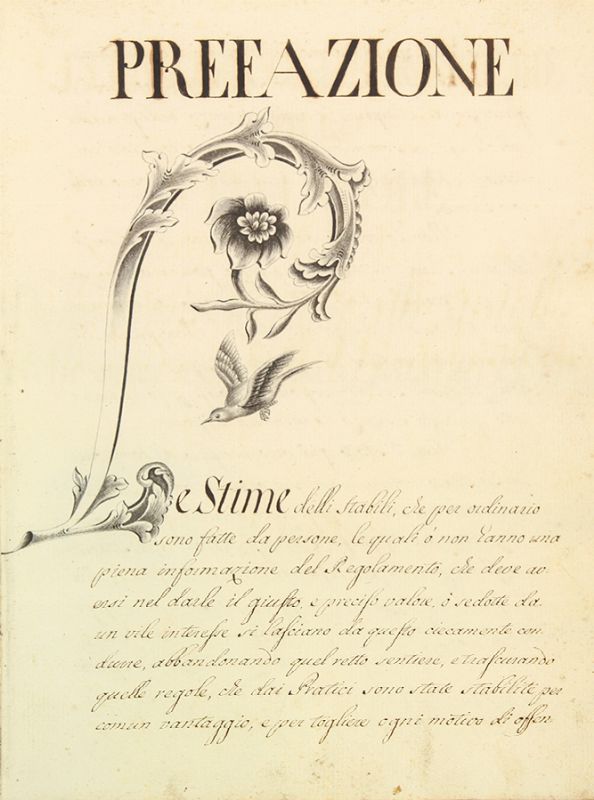 PREFAZIONE
Le Stime delli Stabili, che per ordinario
sono fatte da persone, le quali ò non hanno una
piena informazione del Regolamento, che deve av-
ersi nel darle il giusto, e preciso valore, ò sedotte da
un vile interesse si lasciano da questo ciecamente con
durre, abbandonando quel retto sentiere, e trascurando
quelle regole, che dai Pratici sono state stabilite per
comun vantaggio, e per togliere ogni motivo di offen